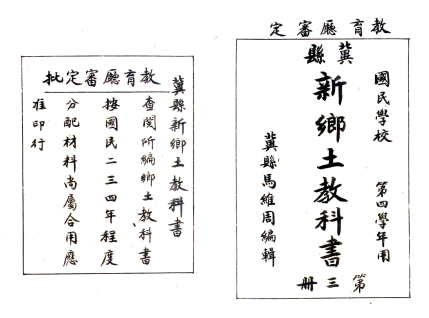 教育廳審定
冀縣
國民學校 第四學年用
新鄉土教科書
冀縣馬維周編輯
第三册
冀縣新鄉土教科書
教育廳審定批
查閱所編鄉土教科書
按國民二三四年程度
分配材料尚屬合用應
准印行